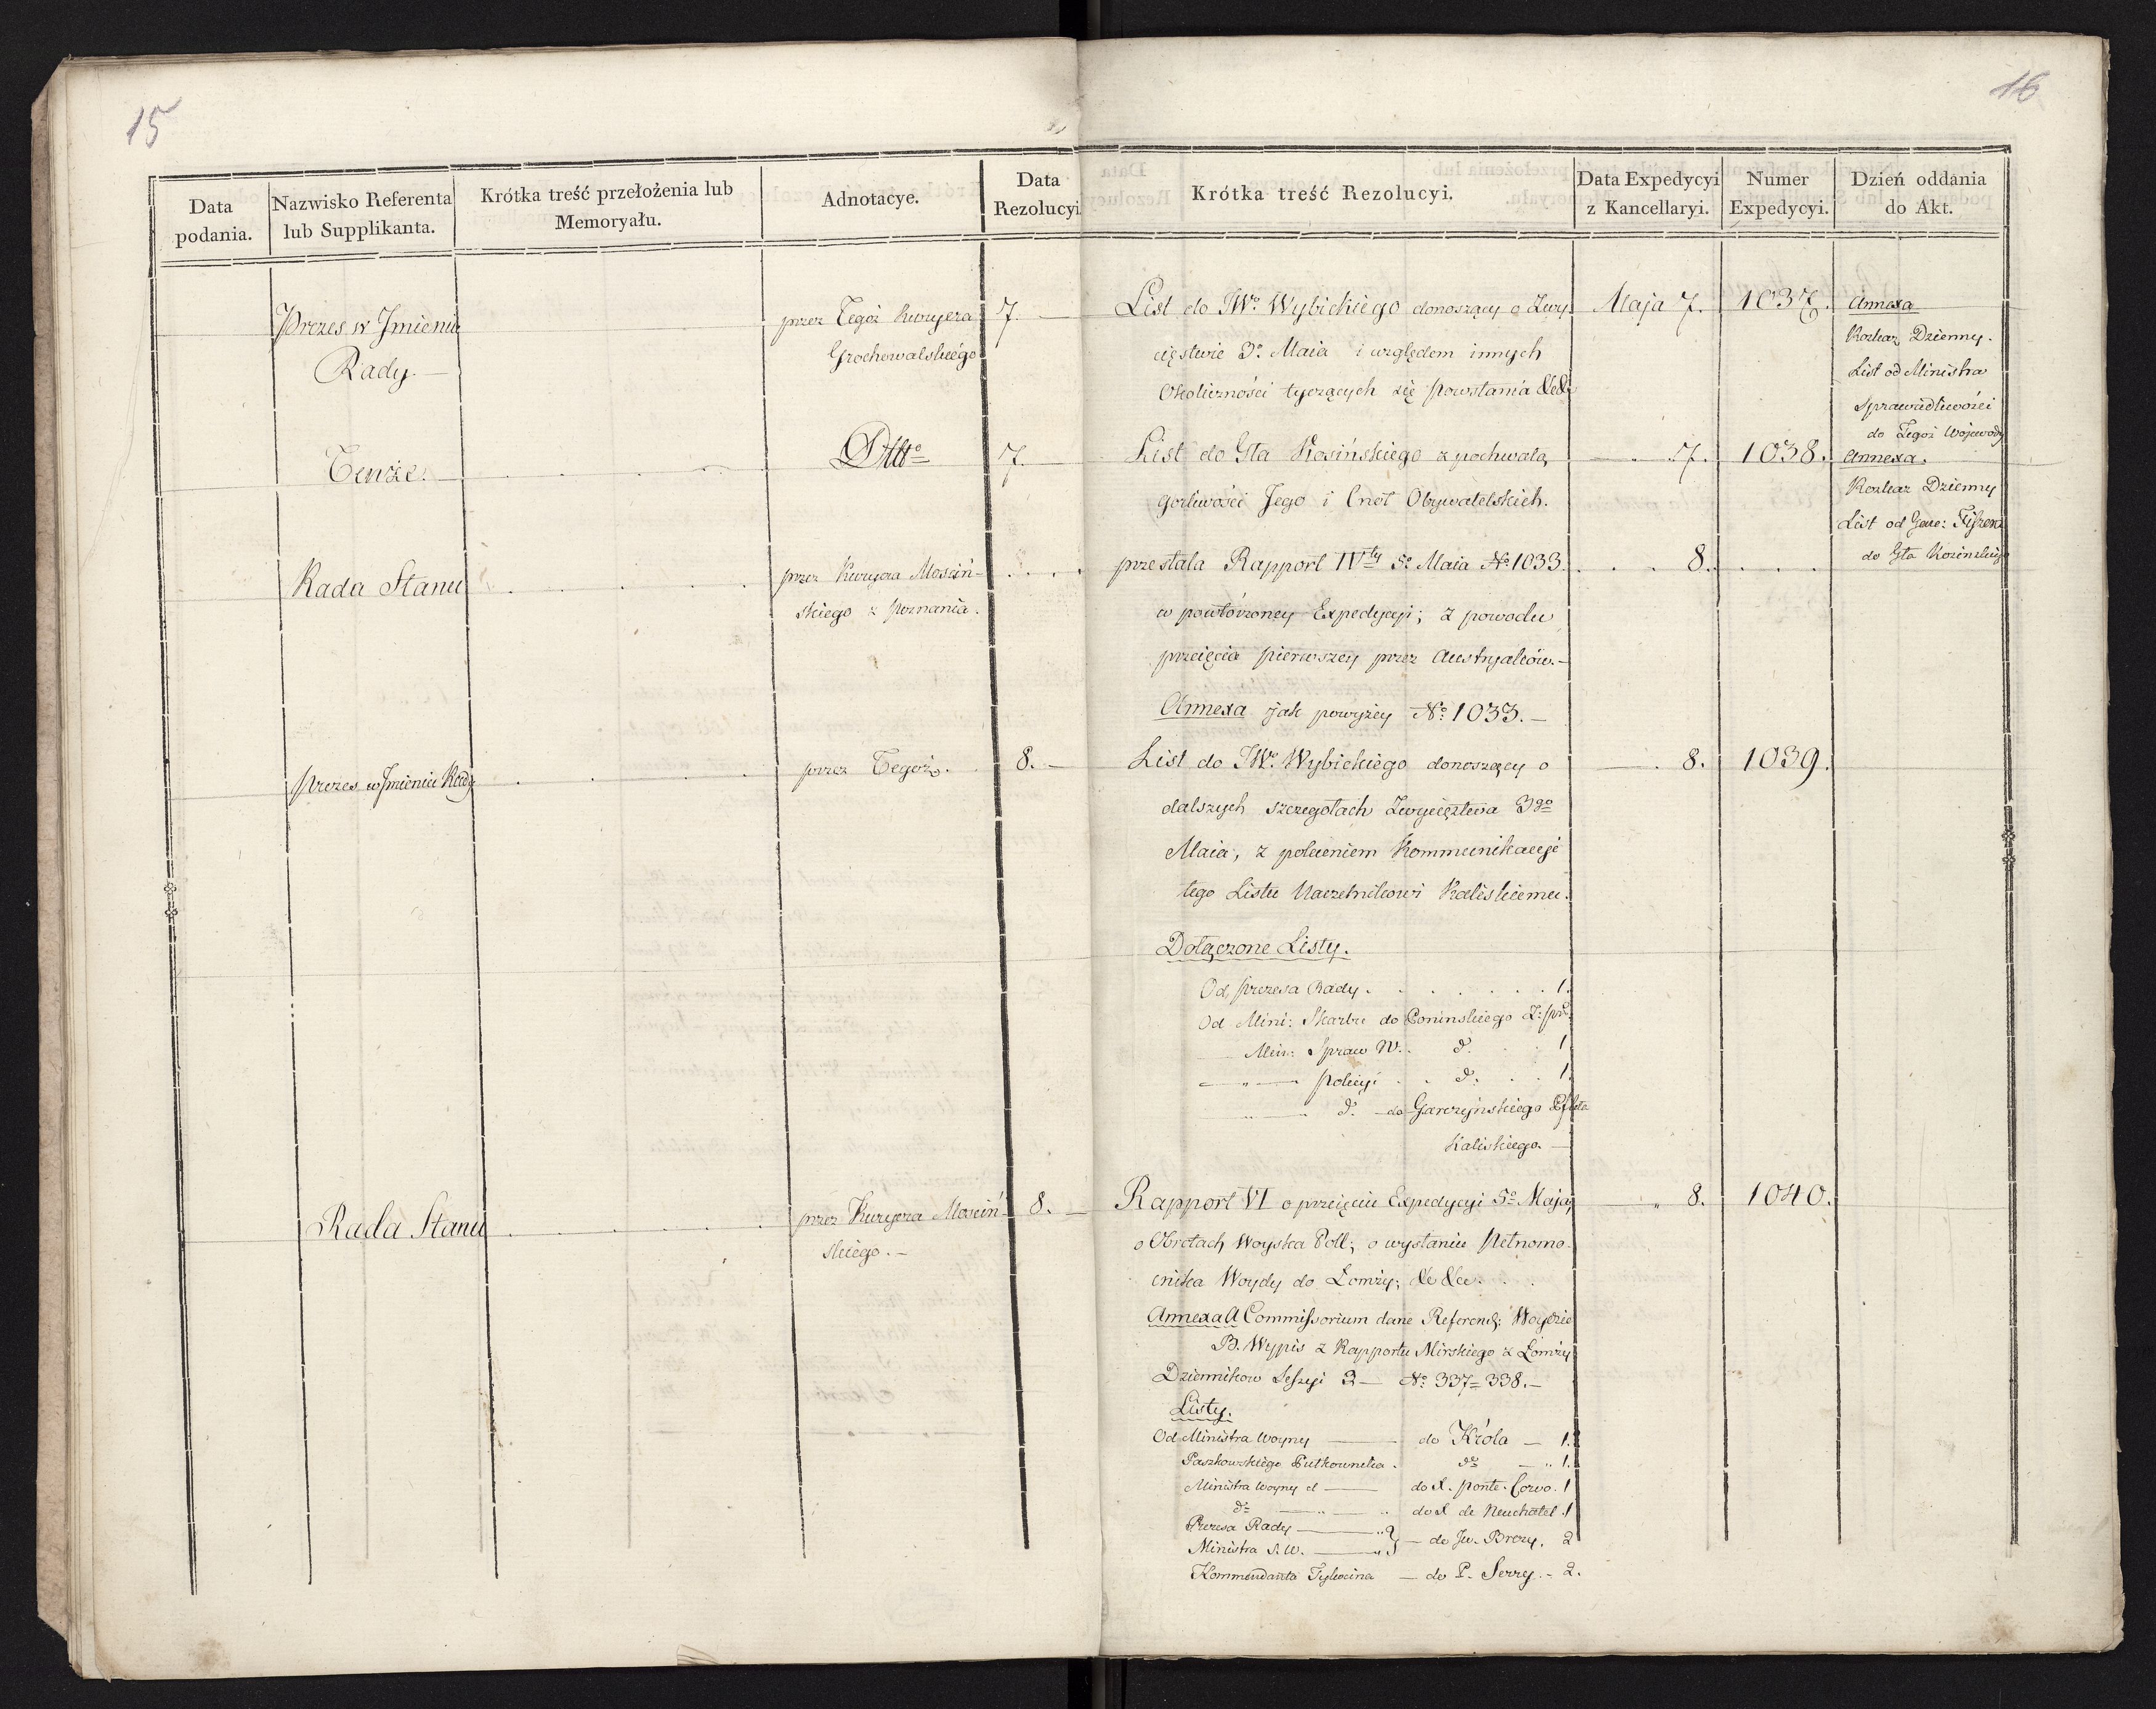 15
16
Data podania.
Nazwisko Referenta lub Supplikanta.
Krótka treść przełożenia lub Memoryału.
Adnotacye.
Data Rezolucyi
Krótka treść Rezolucyi.
Data Expedycyi z Kancellaryi.
Numer Expedycyi.
Dzień oddania do Akt.
Prezes w Jmieniu
Rady. —
przez Tegoż Kuryera
Grochowalskiego
7. —
List do JWo. Wybickiego donoszący o Zwy-
cięstwie 3o. Maia i względem innych
Okoliczności tyczących się Powstania &c&c
Maja 7.
1037.
Annexa
Rozkaz Dzienny.
List od Ministra
Sprawiedliwości
do Tegoż Wojewody
Tenże. —
Ditto
7. —
List do Gła Kosińskiego z pochwałą
gorliwości Jego i Cnót Obywatelskich.
7.
1038.
Annexa.
Rozkaz Dzienny
List od Gene: Fiszera
do Gła Kosinskiego
Rada Stanu
przez Kuryera Mosciń-
skiego z Poznania.
przesłała Rapport IVty 5o Maia No. 1033.
w powtórzoney Expedycyi; z powodu
przeięcia pierwszey przez Austryaków. —
Annexa jak powyżey No. 1033. —
8.
Prezes w Jmieniu Rady
przez Tegoż.
8. —
List do JWo. Wybickiego donoszący o
dalszych szczegółach Zwycięztwa 3go
Maia, z poleceniem Kommunikacyi
tego Listu Naczelnikowi Kaliskiemu.
8.
1039.
Dołączone Listy.
Od Prezesa Rady . . . . . . . 1.
Od Mini: Skarbu do Poninskiego
Min: Spraw W. . do. . . 1
— " — Policyi . . do. . . 1.
— " — do. — do Garczyńskiego Pffta
Kaliskiego. —
Rada Stanu
przez Kuryera Mosciń-
skiego. —
8. —
Rapport VI o przeięciu Expedycyi 5o Maja,
o Obrotach Woyska Poll; o wysłaniu Pełnomo-
cnika Woydy do Łomży; &c &c. . .
— " 8.
1040.
Annexa A Commissorium dane Referend: Woydzie
B. Wypis z Rapportu Mirskiego z Łomży
Dzienników Sessyi 2 — No. 337 = 338. —
Listy.
Od Ministra Woyny — do Króla — 1.
Paszkowskiego Pułkownika . do — " 1.
Ministra Woyny — do X. Ponte-Corvo. 1
do — " — " do X de Neuchatel . 1
Prezesa Rady — "
Ministra S. W. — " } — do Jw. Brezy. 2
Kommendanta Tykocina — do P. Serry. - 2.